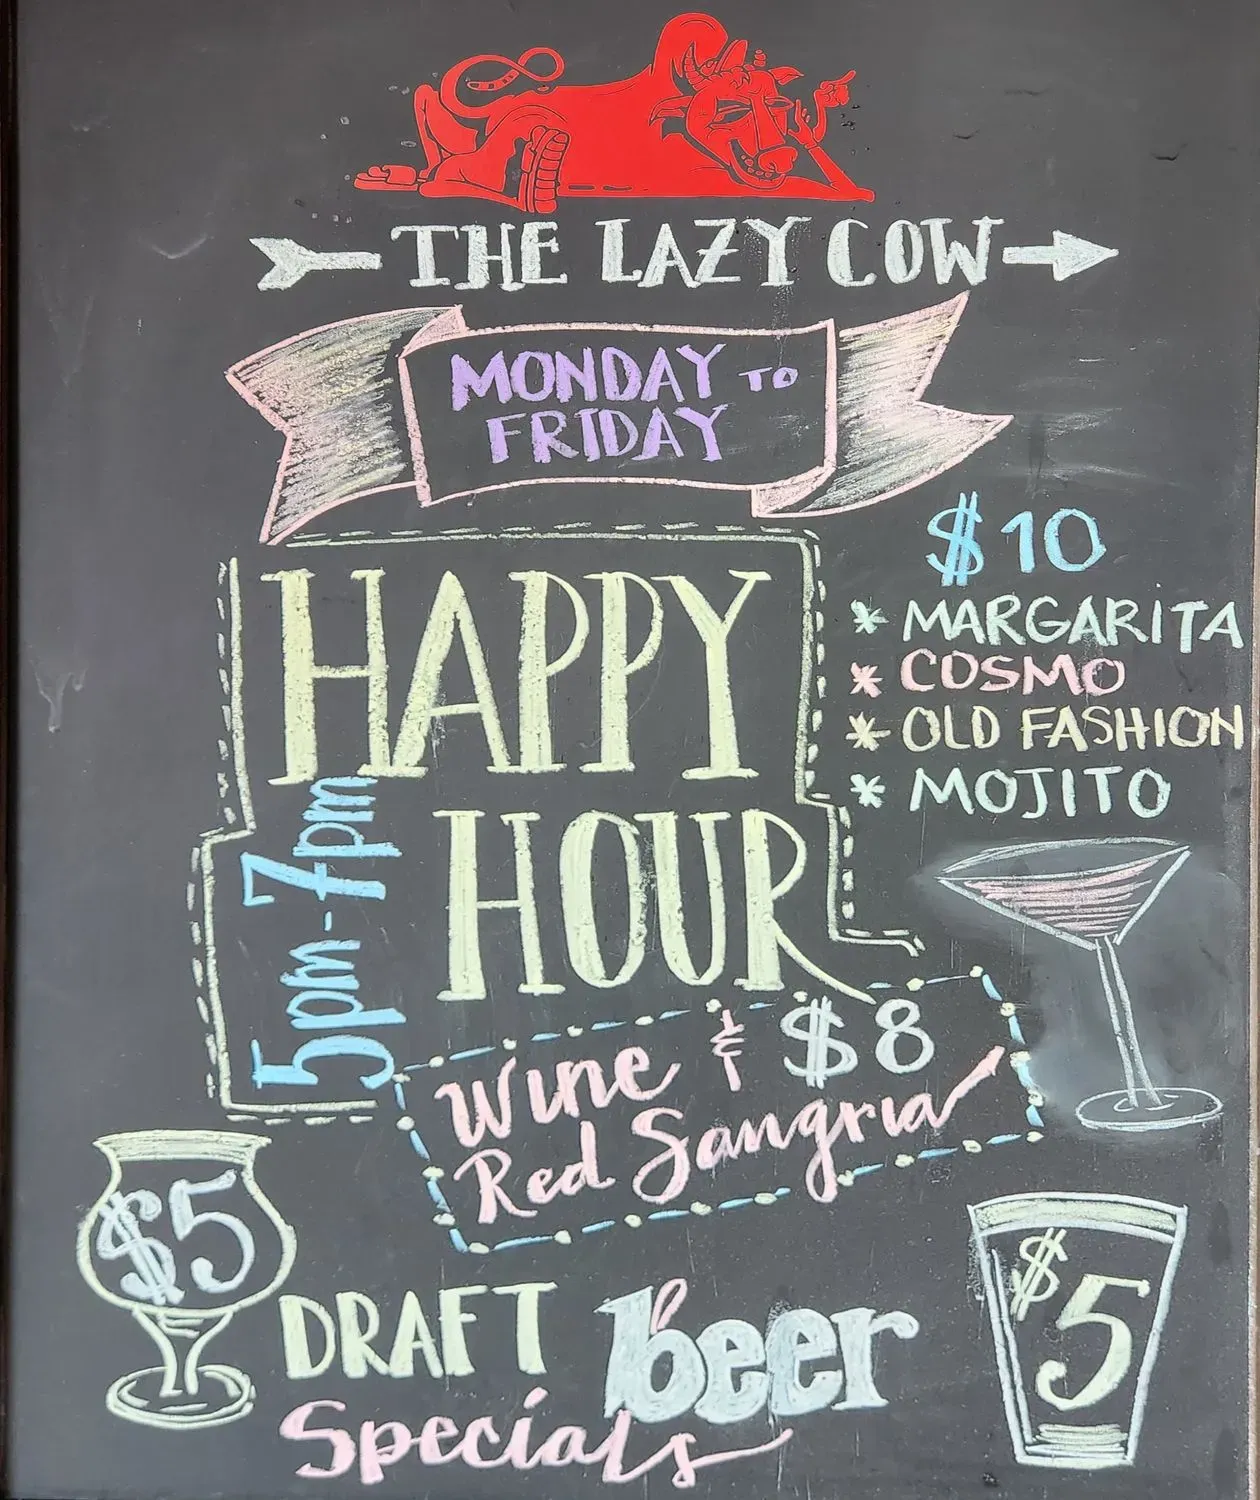 THE LAZY COW
MONDAY TO
FRIDAY
HAPPY
HOUR
5pm-7pm
$10
* MARGARITA
* COSMO
* OLD FASHION
* MOJITO
Wine & $8
Red Sangria
$5
DRAFT beer
Specials
$5